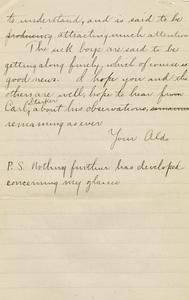 to understand, and is said to be
producing attracting much attention
The sick boys are said to be
getting along finely, which of course is
good news. I hope you and the
others are well, hope to hear from
Carl, about his observations,
remaining as ever
Your Aldo
P.S. Nothing further has developed
concerning my glasses